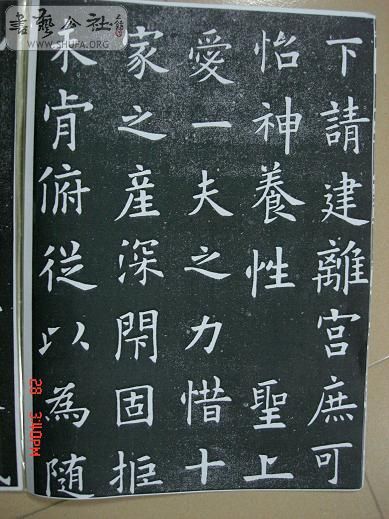 下請建離宮庶可
怡神養性 聖上
愛一夫之力惜十
家之産深閇固拒
未肯俯從以為随
書藝公社
WWW.SHUFA.ORG
28 3:40PM